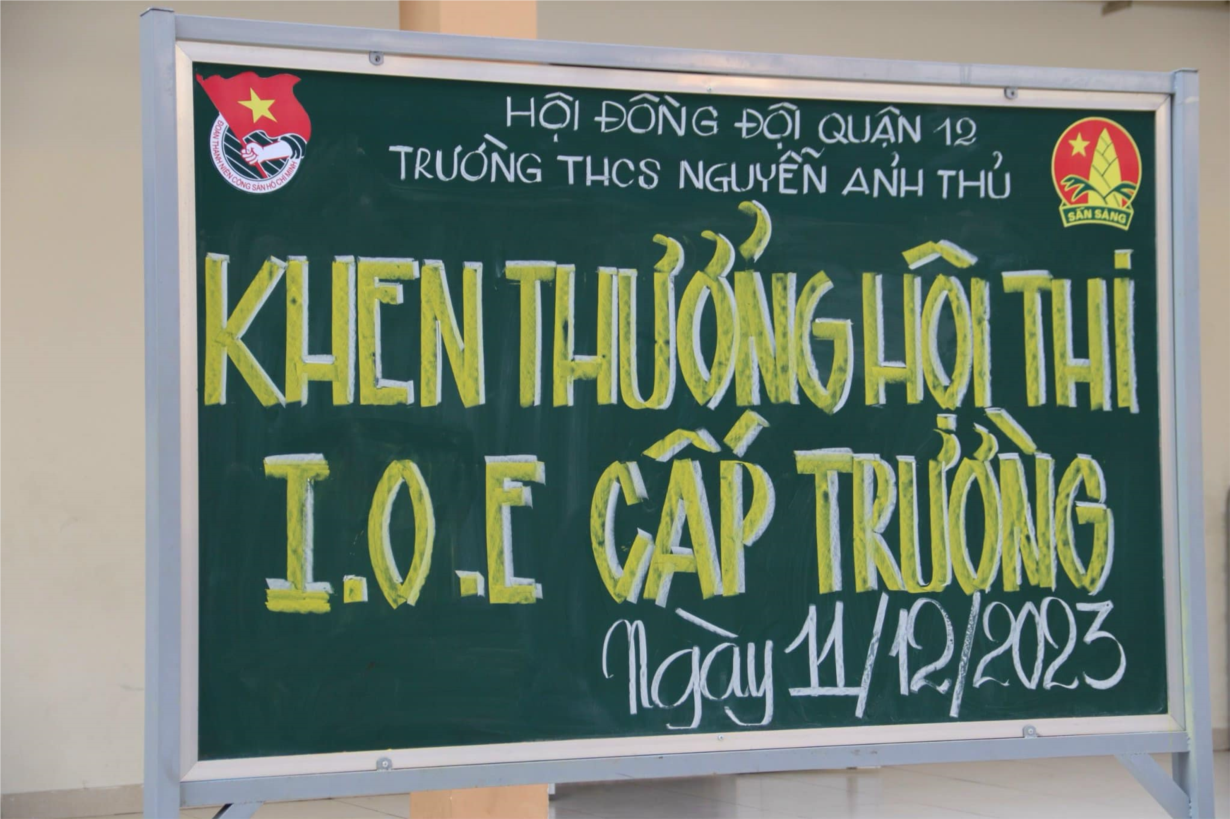 HỘI ĐỒNG ĐỘI QUẬN 12
TRƯỜNG THCS NGUYỄN ẢNH THỦ
KHEN THƯỞNG HỘI THI
I.O.E CẤP TRƯỜNG
Ngày 11/12/2023
ĐOÀN THANH NIÊN CỘNG SẢN HỒ CHÍ MINH
SẴN SÀNG